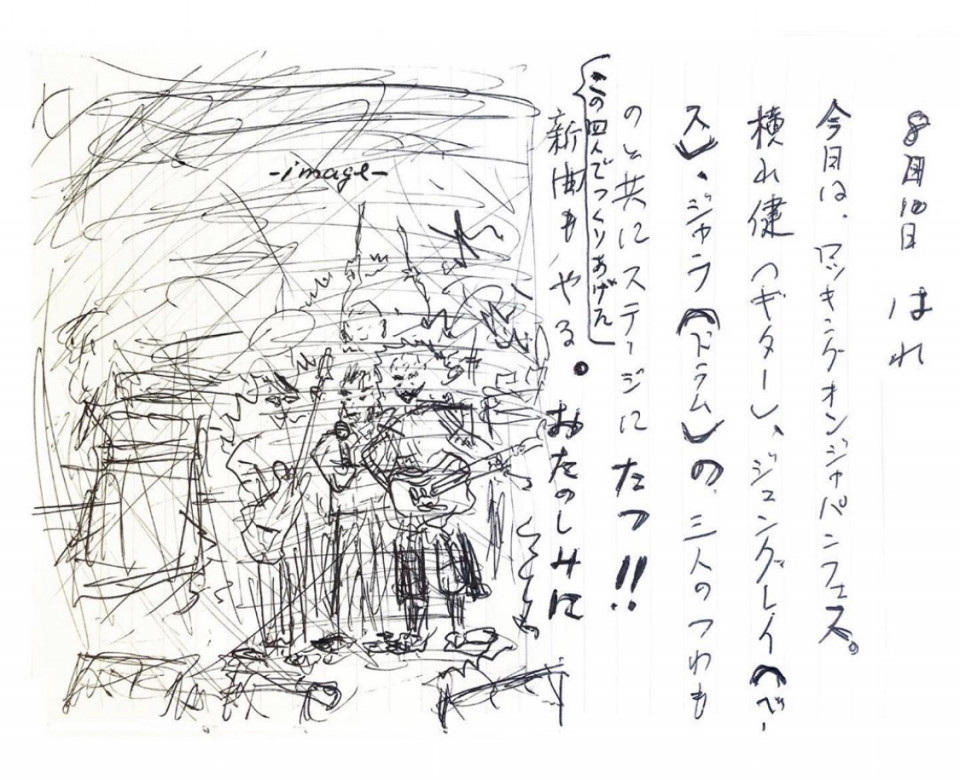 8月10日 はれ
今日は、ロッキングオンジャパンフェス。
横山健(ギター)、ジュングレイ(ベー
ス)、ジャラ(ドラム)の、三人のつわも
のと共にステージにたつ!!
この四人でつくりあげた
新曲もやる。おたのしみに
-image-